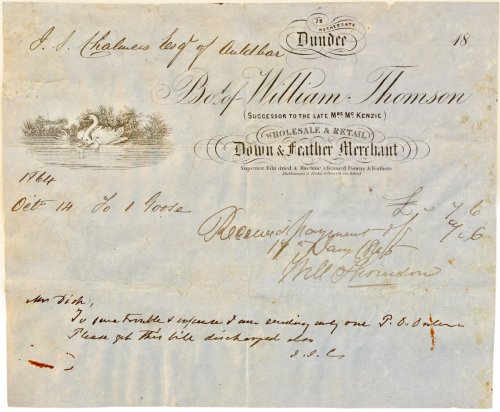 78
NETHERGATE
Dundee 18
J. I. Chalmers Esqr of Auldbar
Bot. of William Thomson
(SUCCESSOR TO THE LATE MRS MC KENZIE)
WHOLESALE & RETAIL
Down & Feather Merchant
Superior Kiln dried & Machine cleaned Downs & Feathers
1864
Oct 14 To 1 Goose £ " 7/6
Received payment of 7/6
17 Jany 1865
Will Thomson
Mr Dick,
To save trouble & expense I am sending only one P. O. Order
Please get this bill discharged also
J. I. C